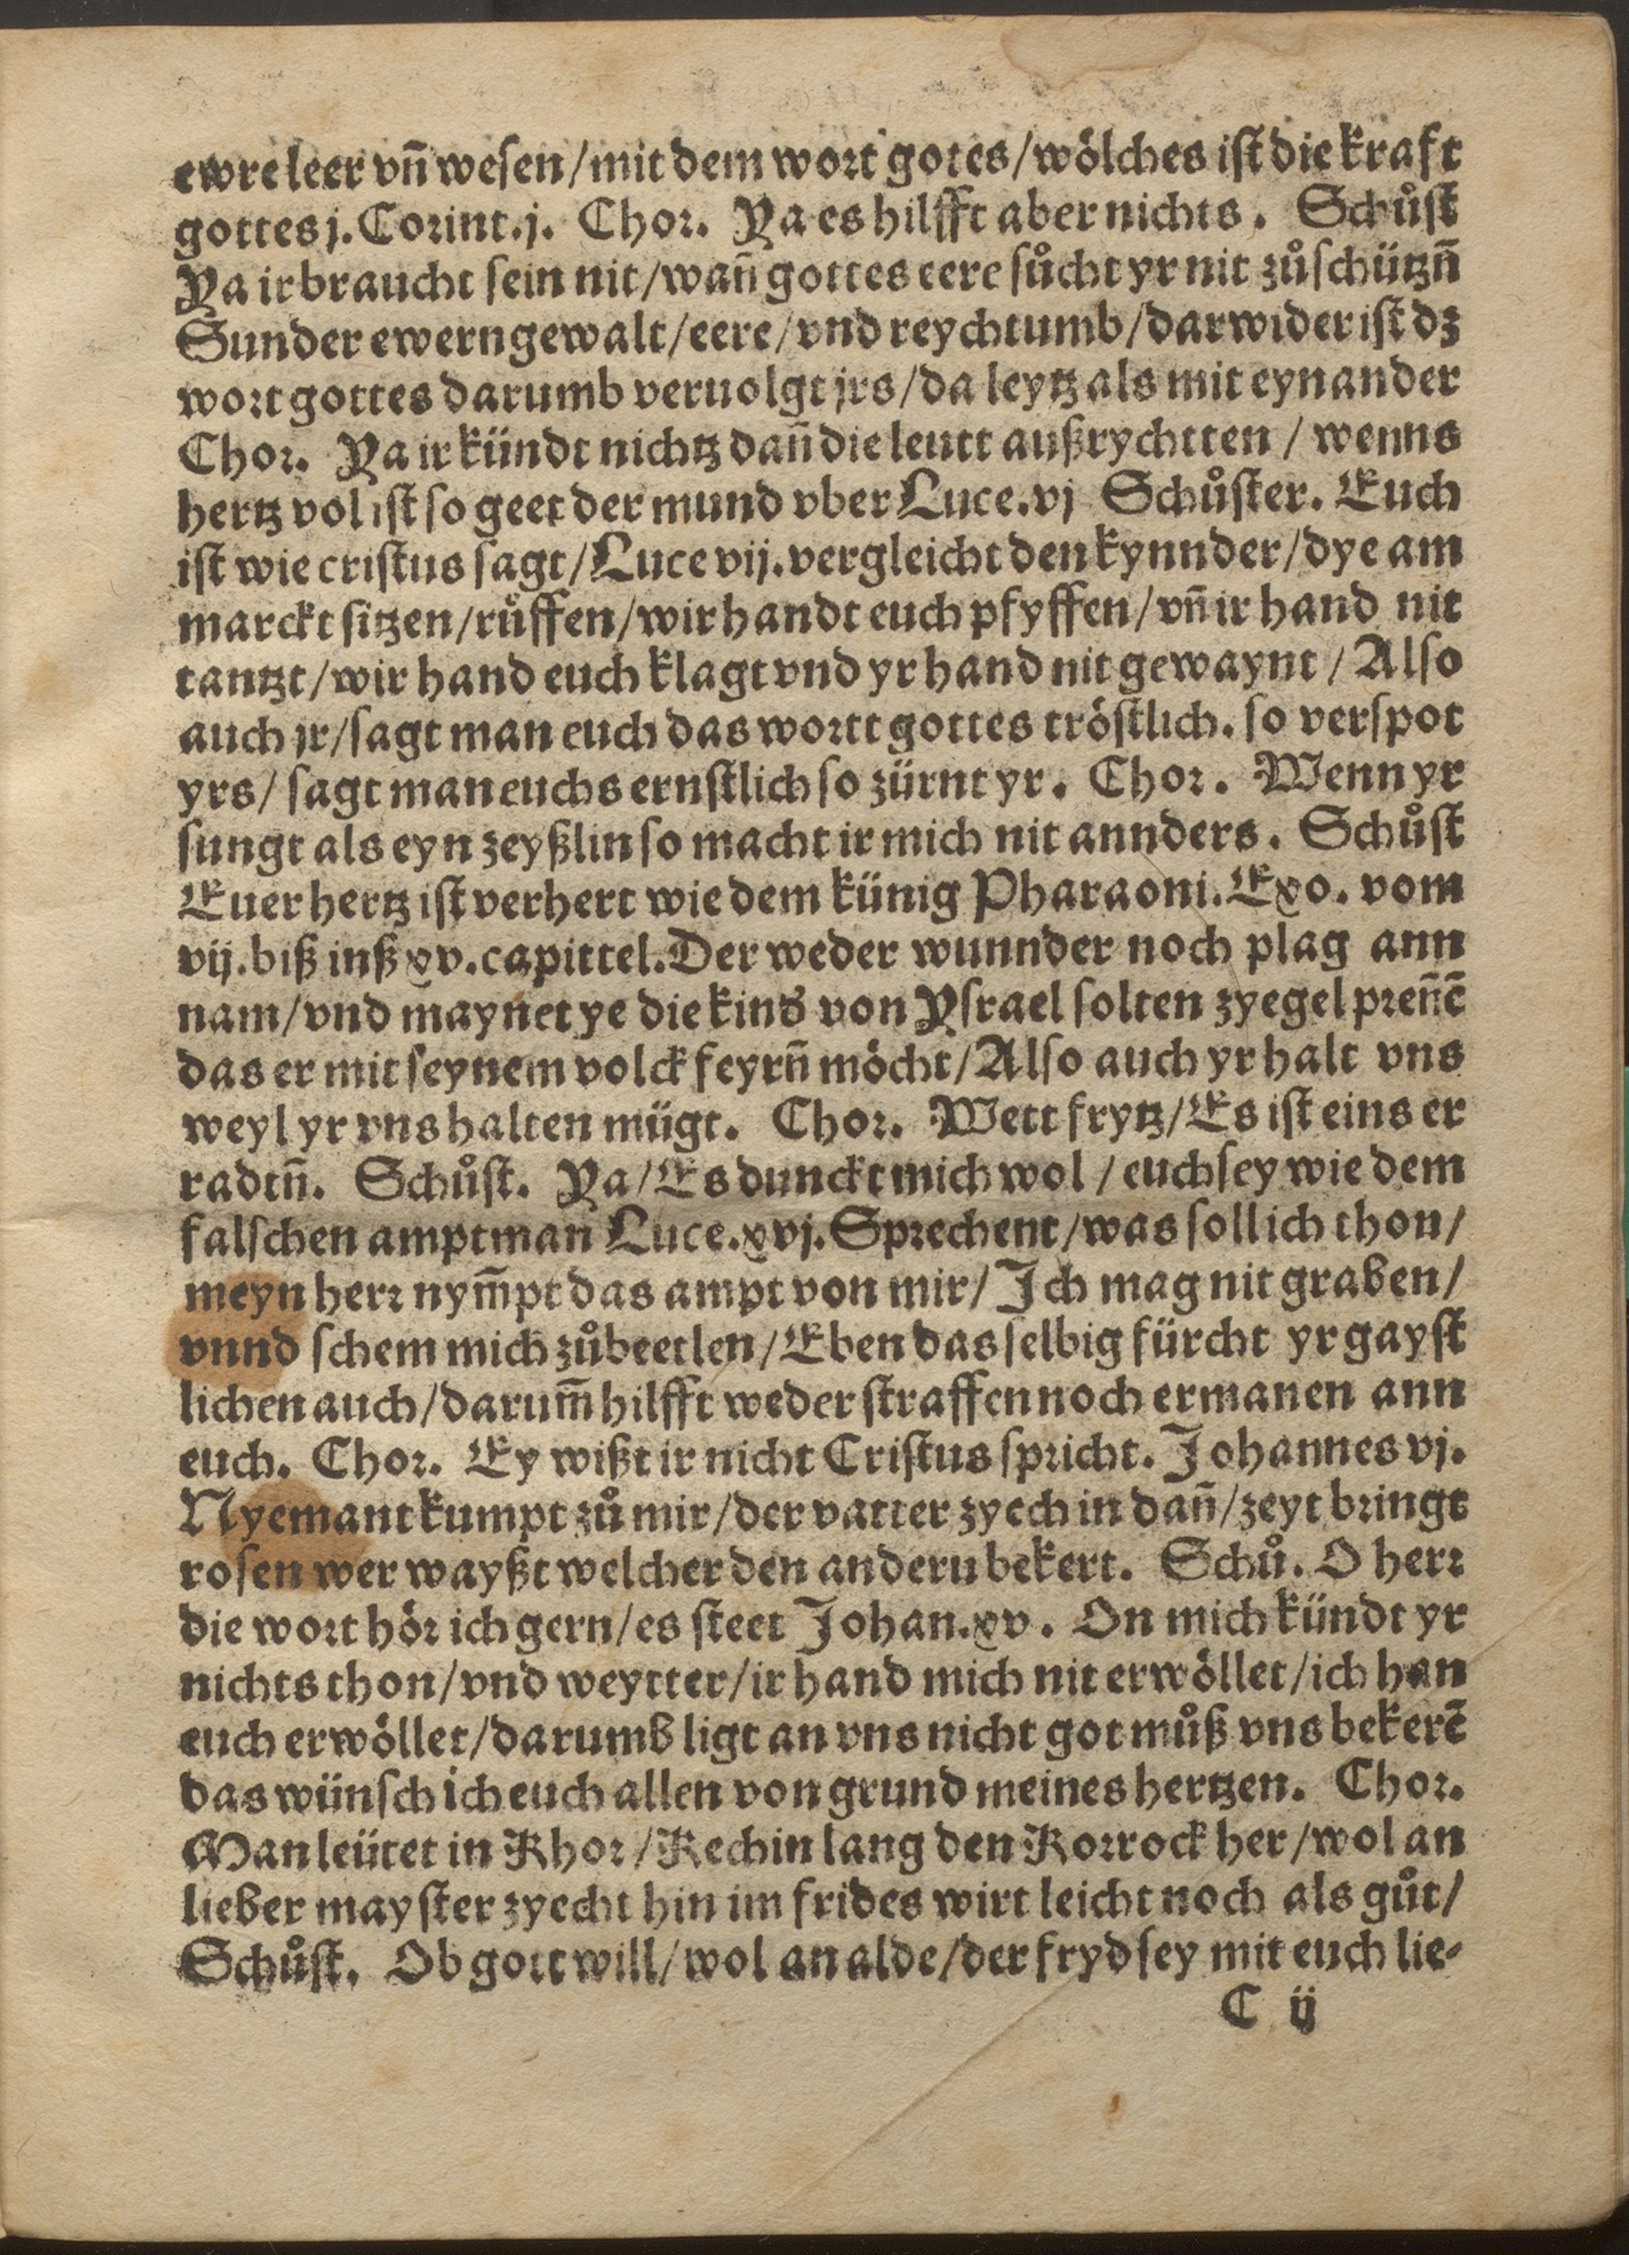 ewre leer vñ wesen/mit dem wort gotes/wölches ist die kraft
gottes j. Corint.j. Chor. Ya es hilfft aber nichts. Schůst
Ya ir braucht sein nit/wañ gottes eere sůcht yr nit zůschützñ
Sunder ewern gewalt/eere/vnd reychtumb/darwider ist dz
wort gottes darumb veruolgt jrs/da leytz als mit eynander
Chor. Ya ir kündt nichtz dañ die leutt außrychtten/wenns
hertz vol ist so geet der mund vber Luce.vj Schůster. Euch
ist wie cristus sagt/Luce vij.vergleicht den kynnder/dye am
marckt sitzen/růffen/wir handt euch pfyffen/vñ ir hand nit
tantzt/wir hand euch klagt vnd yr hand nit gewaynt/Also
auch jr/sagt man euch das wortt gottes tröstlich. so verspot
yrs/sagt man euchs ernstlich so zürnt yr. Chor. Wenn yr
sungt als eyn zeyßlin so macht ir mich nit annders. Schůst
Euer hertz ist verhert wie dem künig Pharaoni. Exo. vom
vij.biß inß xv.capittel.Der weder wunnder noch plag ann
nam/vnd maynet ye die kind' von Ysrael solten zyegel preñẽ
das er mit seynem volck feyrñ möcht/Also auch yr halt vns
weyl yr vns halten mügt. Chor. Wett frytz/Es ist eins er
radtñ. Schůst. Ya/Es dunckt mich wol/euch sey wie dem
falschen amptman Luce.xvj.Sprechent/was soll ich thon/
meyn herr nym̃pt das ampt von mir/Ich mag nit graben/
vnnd schem mich zůbeetlen/Eben das selbig fürcht yr gayst
lichen auch/darum̃ hilfft weder straffen noch ermanen ann
euch. Chor. Ey wißt ir nicht Cristus spricht. Johannes vj.
Nyemant kumpt zů mir/der vatter zyech in dañ/zeyt bringt
rosen wer wayßt welcher den anderu bekert. Schů. O herr
die wort hör ich gern/es steet Johan.xv. On mich kündt yr
nichts thon/vnd weytter/ir hand mich nit erwöllet/ich han
euch erwöllet/darumb ligt an vns nicht got můß vns bekerẽ
das wünsch ich euch allen von grund meines hertzen. Chor.
Man leütet in Khor/Kechin lang den Korrock her/wol an
lieber mayster zyecht hin im frides wirt leicht noch als gůt/
Schůst. Ob gott will/wol an alde/der fryd sey mit euch lie-
C ij